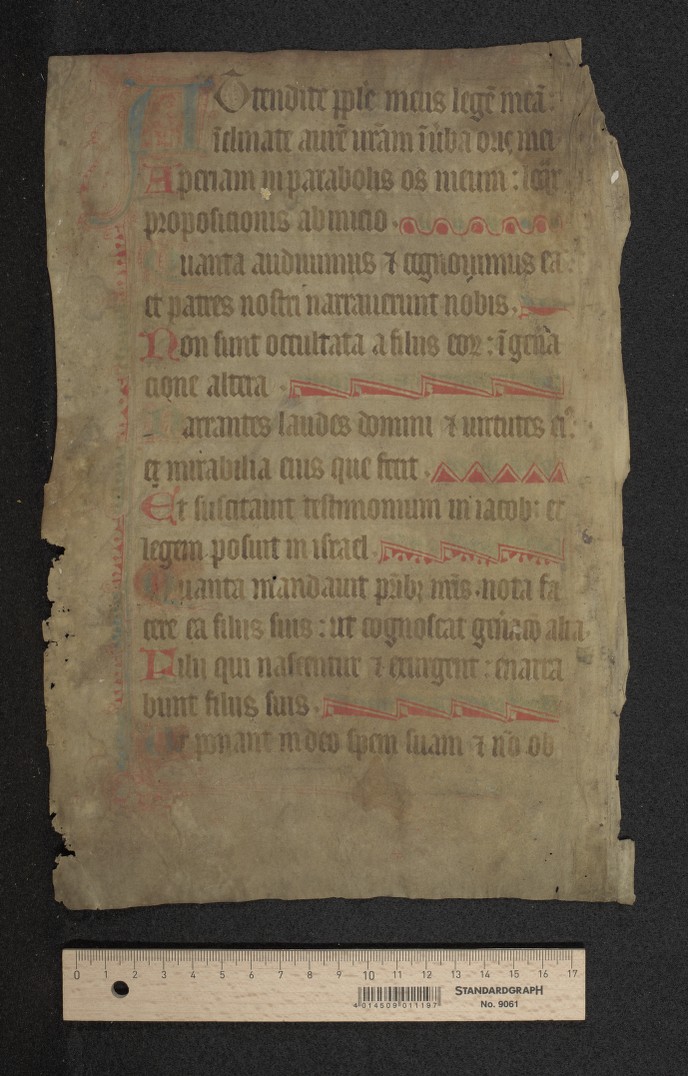 ATtendite pp̄le meus legē meā:
īclinate aurē vr̄am ī ūba oris mei
Aperiam in parabolis os meum: loq̄r
proposicionis ab inicio .
Quanta audiuimus ⁊ cognouimus ea:
et patres nostri narrauerunt nobis.
Non sunt occultata a filiis eoꝝ: ī gen̄a
cione altera .
Narrantes laudes domini ⁊ uirtutes ei⁹:
et mirabilia eius que fecit .
Et suscitauit testimonium in iacob: et
legem posuit in israel .
Quanta mandauit pr̄ibꝫ nr̄is . nota fa
cere ea filiis suis: ut cognoscat gen̄acō alt̄a.
Filii qui nascentur ⁊ exurgent: enarra
bunt filiis suis .
Ut ponant in deo spem suam ⁊ nō ob
0 1 2 3 4 5 6 7 8 9 10 11 12 13 14 15 16 17
STANDARDGRAPH
No. 9061
4 014509 011197